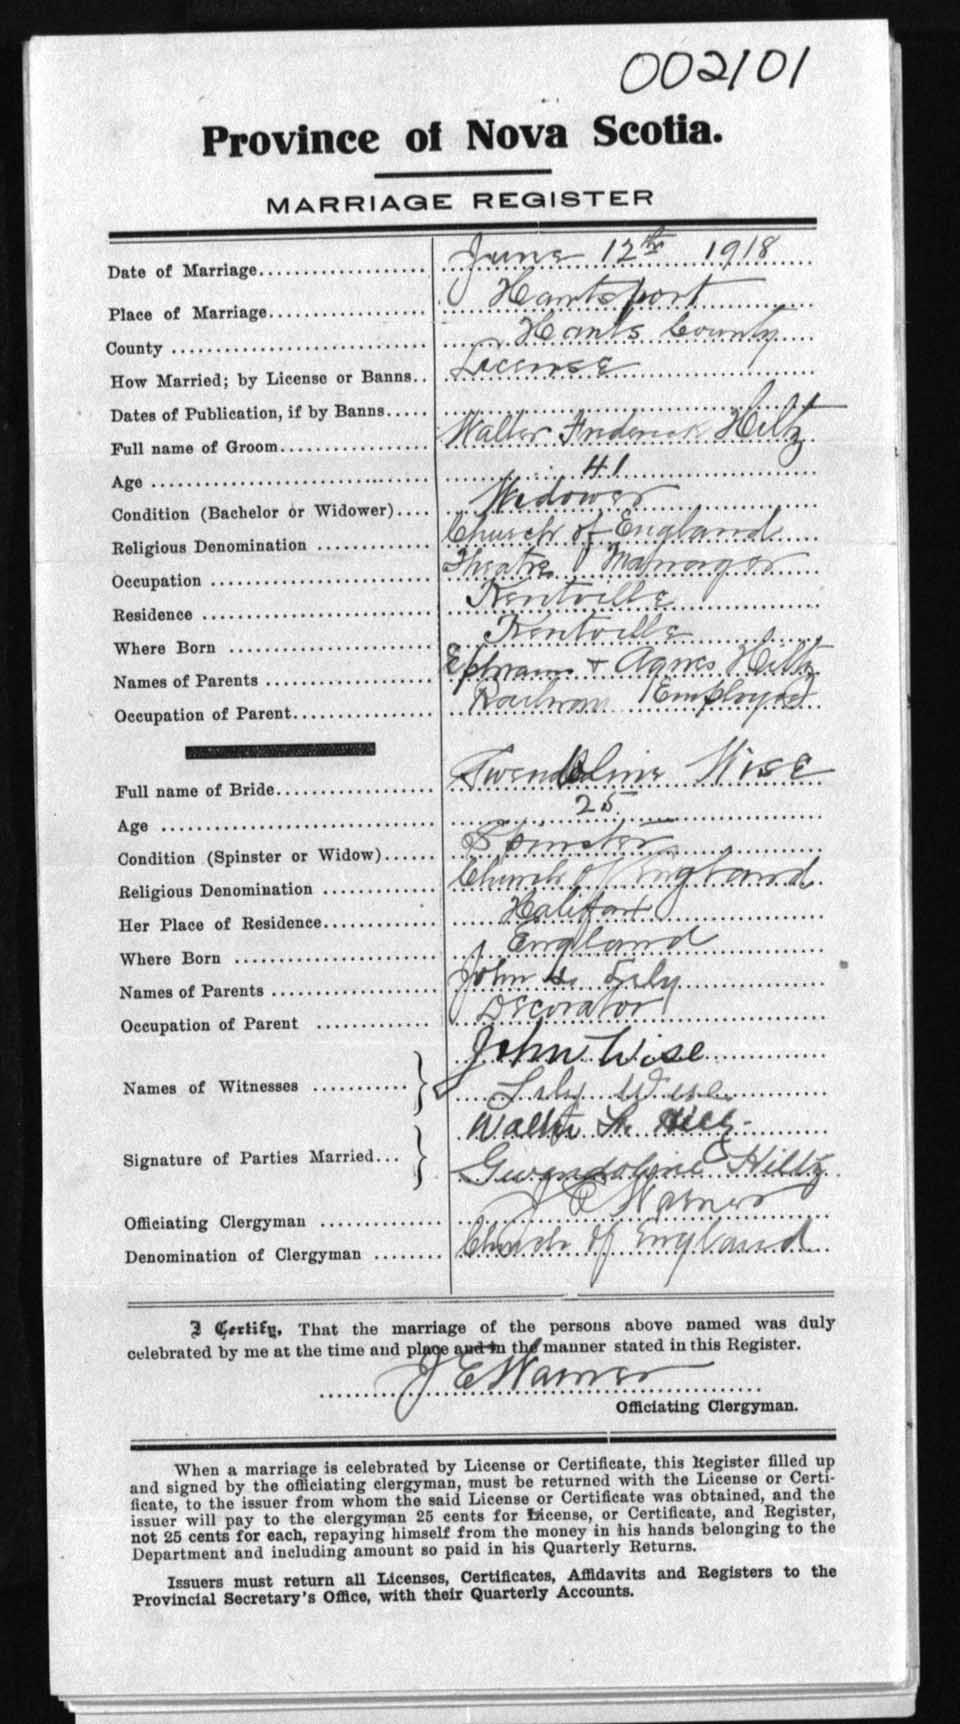 002101
Province of Nova Scotia.
MARRIAGE REGISTER
Date of Marriage June 12th 1918
Place of Marriage Hantsport
County Hants County
How Married; by License or Banns License
Dates of Publication, if by Banns
Full name of Groom Walter Frederick Hiltz
Age 41
Condition (Bachelor or Widower) Widower
Religious Denomination Church of England
Occupation Theatre Manager
Residence Kentville
Where Born Kentville
Names of Parents Ephraim + Agnes Hiltz
Occupation of Parent Railway Employed
Full name of Bride Gwendoline Wise
Age 25
Condition (Spinster or Widow) Spinster
Religious Denomination Church of England
Her Place of Residence Halifax
Where Born England
Names of Parents John & Lily
Occupation of Parent Decorator
Names of Witnesses John Wise
Lily Wise
Signature of Parties Married Walter Hiltz
Gwendoline Hiltz
Officiating Clergyman J E Warner
Denomination of Clergyman Church of England
I Certify, That the marriage of the persons above named was duly
celebrated by me at the time and place and in the manner stated in this Register.
J E Warner
Officiating Clergyman.
When a marriage is celebrated by License or Certificate, this Register filled up
and signed by the officiating clergyman, must be returned with the License or Certi-
ficate, to the issuer from whom the said License or Certificate was obtained, and the
issuer will pay to the clergyman 25 cents for License, or Certificate, and Register,
not 25 cents for each, repaying himself from the money in his hands belonging to the
Department and including amount so paid in his Quarterly Returns.
Issuers must return all Licenses, Certificates, Affidavits and Registers to the
Provincial Secretary's Office, with their Quarterly Accounts.